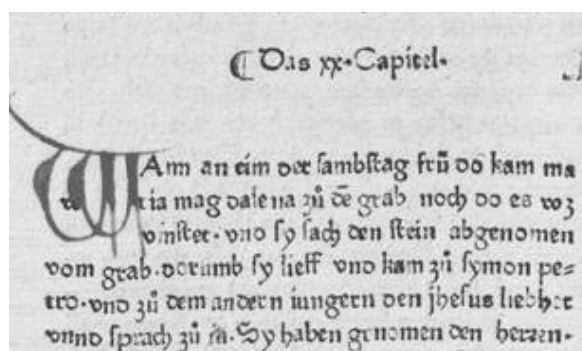 ⁋ Das xx·Capitel·
WAnn an eim der sambstag frü do kam ma
ria mag dalena zů dē grab noch do es wz
vinster· vnd sy sach den stein abgenomen
vom grab· dorumb sy lieff vnd kam zů symon pe=
tro· vnd zů dem andern iungern den jhesus liebhet
vnnd sprach zů in· Sy haben genomen den herren·